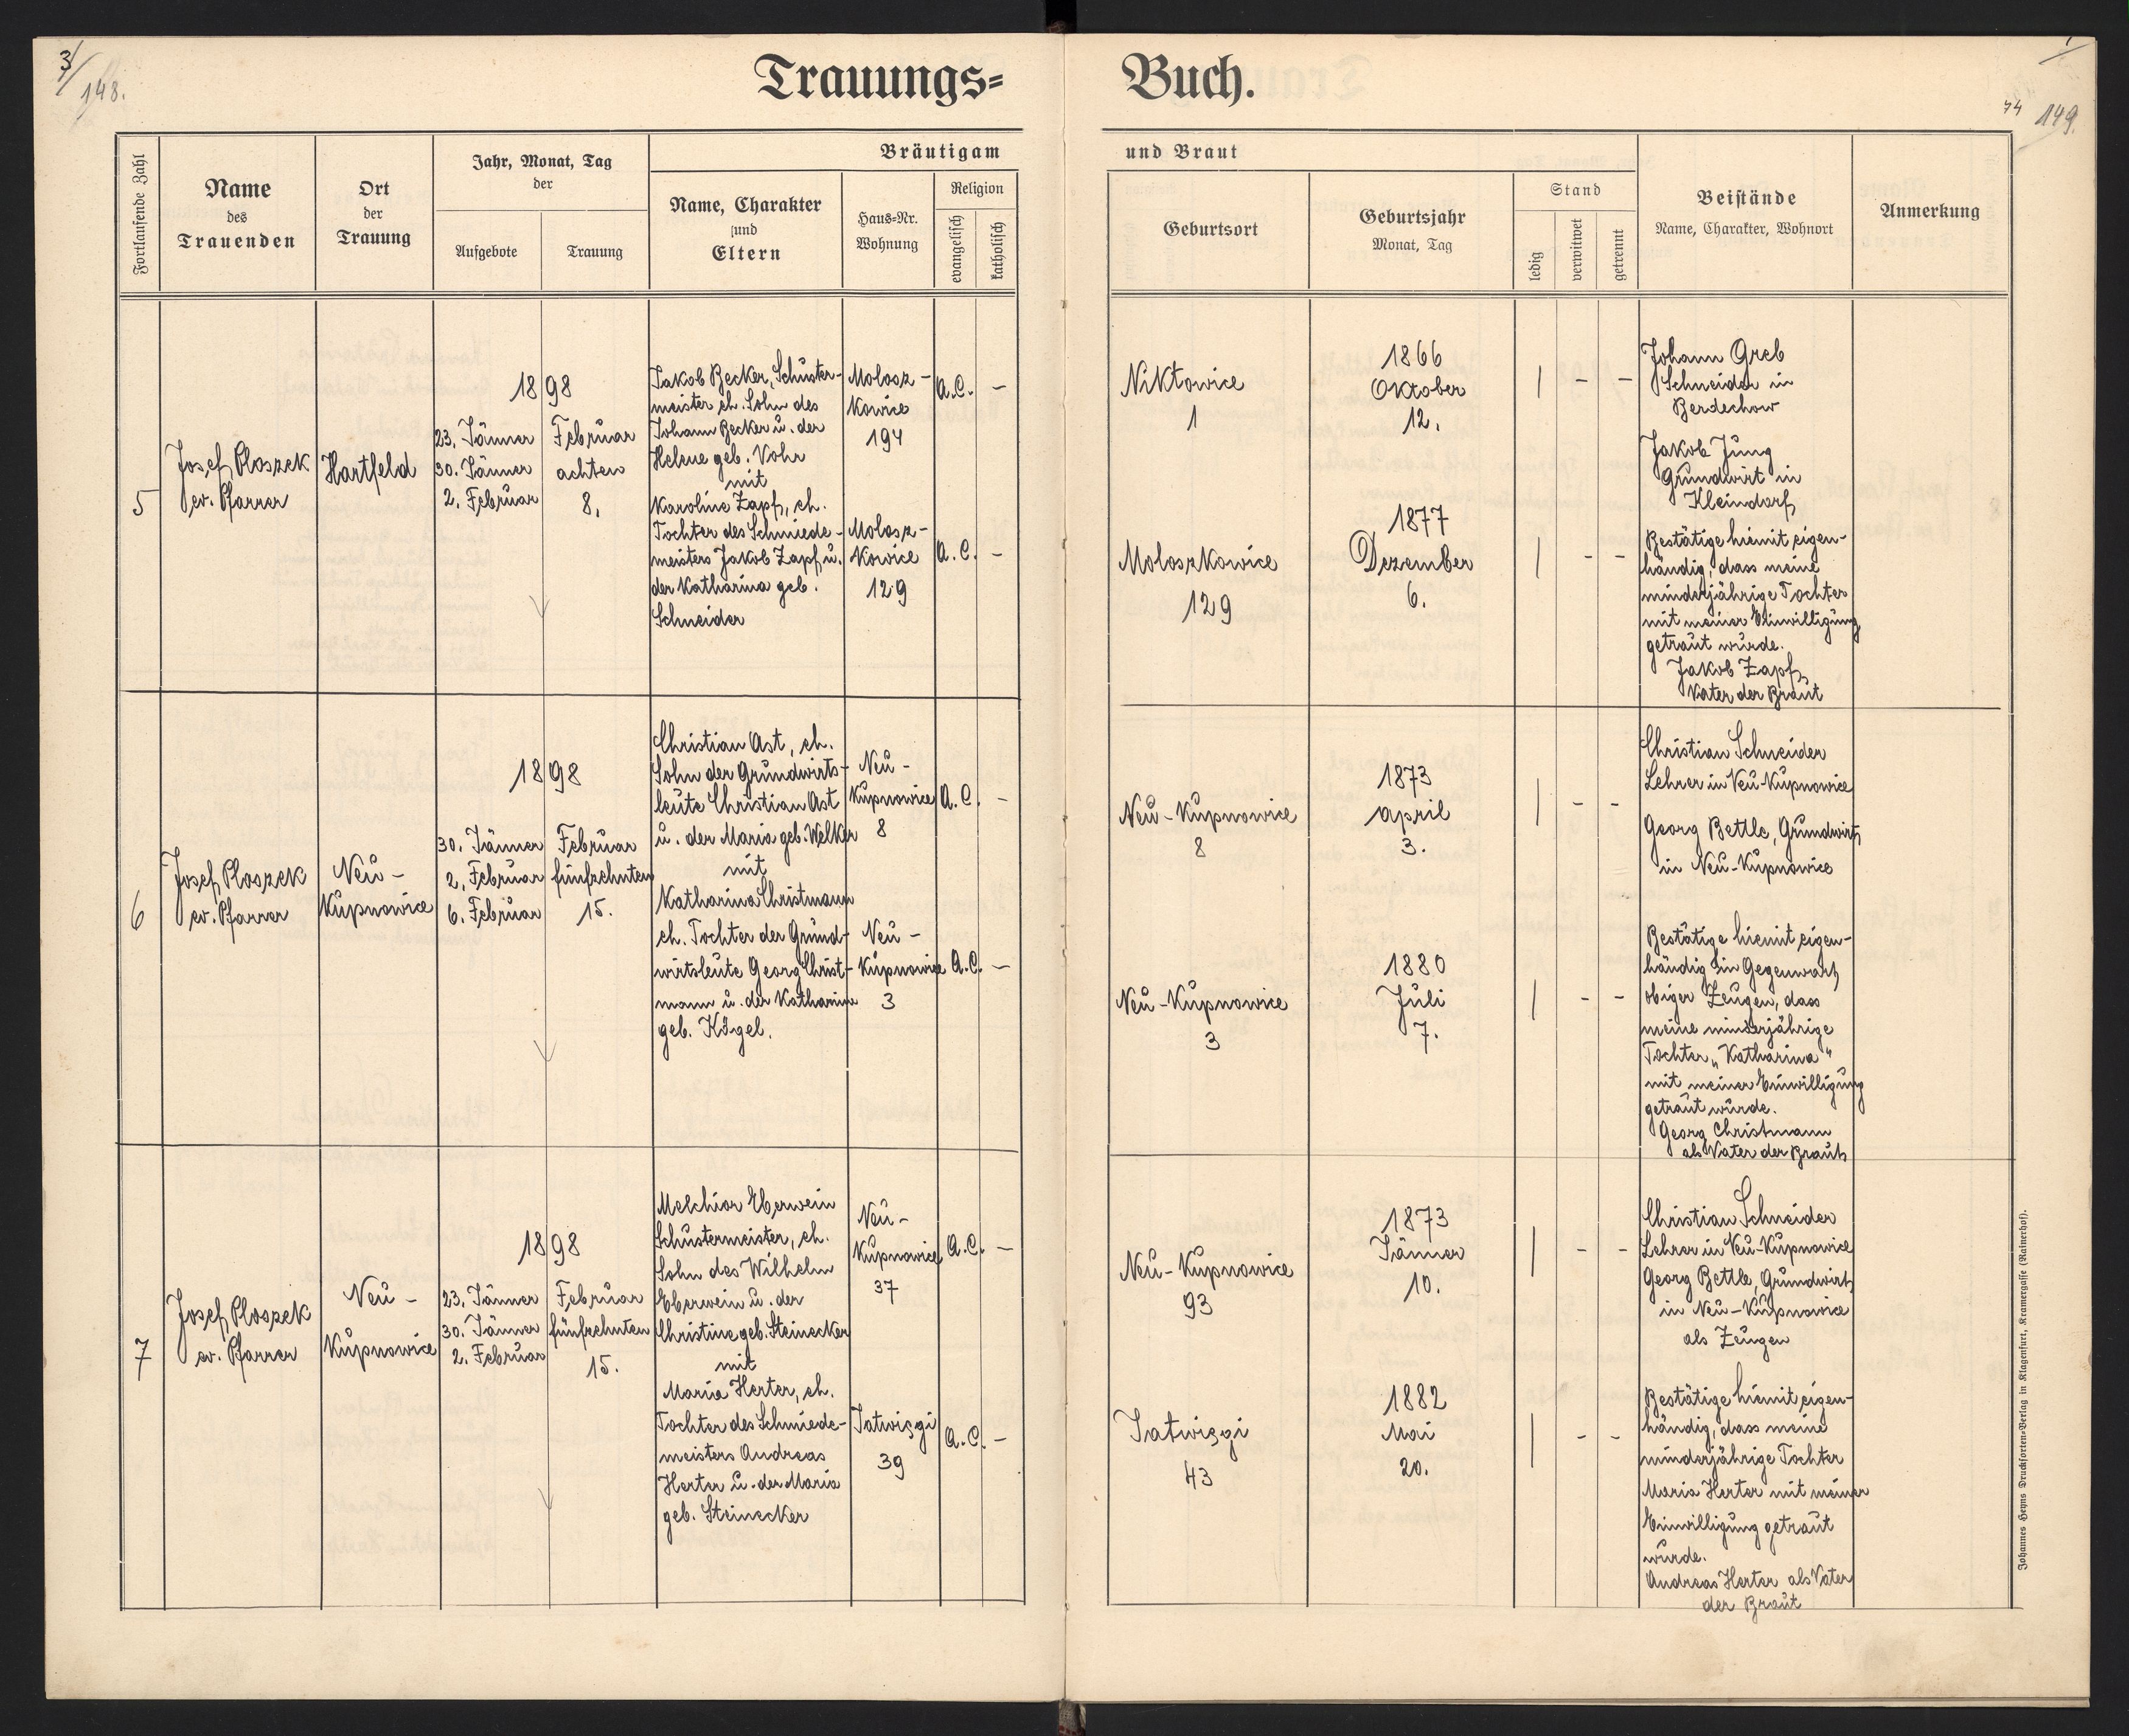 3/
148.
Trauungs=
Buch.
74
149.
Fortlaufende Zahl
Name
des
Trauenden
Ort
der
Trauung
Jahr, Monat, Tag
der
Aufgebote
Trauung
Bräutigam
Name, Charakter
und
Eltern
Haus=Nr.
Wohnung
Religion
evangelisch
katholisch
und Braut
Geburtsort
Geburtsjahr
Monat, Tag
Stand
ledig
verwitwet
getrennt
Beistände
Name, Charakter, Wohnort
Anmerkung
5
Josef Ploszek
ev. Pfarrer
Hartfeld
1898
23. Jänner
30. Jänner
2. Februar
Februar
achten
8.
Jakob Becker, Schuster-
meister eh. Sohn des
Johann Becker u. der
Helene geb. Vohr
mit
Karoline Zapf, eh.
Tochter des Schmiede-
meisters Jakob Zapf u.
der Katharina geb.
Schneider
Molosz-
kowice
194
Molosz-
kowice
129
A.C. –
A.C. –
Niktowice
1
Moloszkowice
129
1866
Oktober
12.
1877
Dezember
6.
| - -
| - -
Johann Greb
Schneider in
Berdechow
Jakob Jung
Grundwirt in
Kleindorf
Bestätige hiemit eigen-
händig, dass meine
minderjährige Tochter
mit meiner Einwilligung
getraut wurde.
Jakob Zapf
Vater der Braut
6
Josef Ploszek
ev. Pfarrer
Neu-
Kupnowice
1898
30. Jänner
2. Februar
6. Februar
Februar
fünfzehnten
15.
Christian Ast, eh.
Sohn der Grundwirts-
leute Christian Ast
u. der Maria geb. Welker
mit
Katharina Christmann
eh. Tochter der Grund-
wirtsleute Georg Christ-
mann u. der Katharina
geb. Kögel.
Neu-
Kupnowice
8
Neu-
Kupnowice
3
A.C. –
A.C. –
Neu-Kupnowice
8
Neu-Kupnowice
3
1873
April
3.
1880
Juli
7.
| - -
| - -
Christian Schneider
Lehrer in Neu-Kupnowice
Georg Bettle, Grundwirt
in Neu-Kupnowice
Bestätige hiemit eigen-
händig in Gegenwart
obiger Zeugen, dass
meine minderjährige
Tochter „Katharina"
mit meiner Einwilligung
getraut wurde.
Georg Christmann
als Vater der Braut
7
Josef Ploszek
ev. Pfarrer
Neu-
Kupnowice
1898
23. Jänner
30. Jänner
2. Februar
Februar
fünfzehnten
15.
Melchior Eberwein
Schustermeister, eh.
Sohn des Wilhelm
Eberwein u. der
Christine geb. Steinecker
mit
Maria Herter, eh.
Tochter des Schmiede-
meisters Andreas
Herter u. der Maria
geb. Steinecker
Neu-
Kupnowice
37
Jatwięgi
39
A.C. –
A.C. –
Neu-Kupnowice
93
Jatwięgi
43
1873
Jänner
10.
1882
Mai
20.
| - -
| - -
Christian Schneider
Lehrer in Neu-Kupnowice
Georg Bettle, Grundwirt
in Neu-Kupnowice
als Zeugen
Bestätige hiemit eigen-
händig, dass meine
minderjährige Tochter
Maria Herter mit meiner
Einwilligung getraut
wurde.
Andreas Herter als Vater
der Braut
Johannes Heyns Drucksorten=Verlag in Klagenfurt, Kramergasse (Rainerhof).